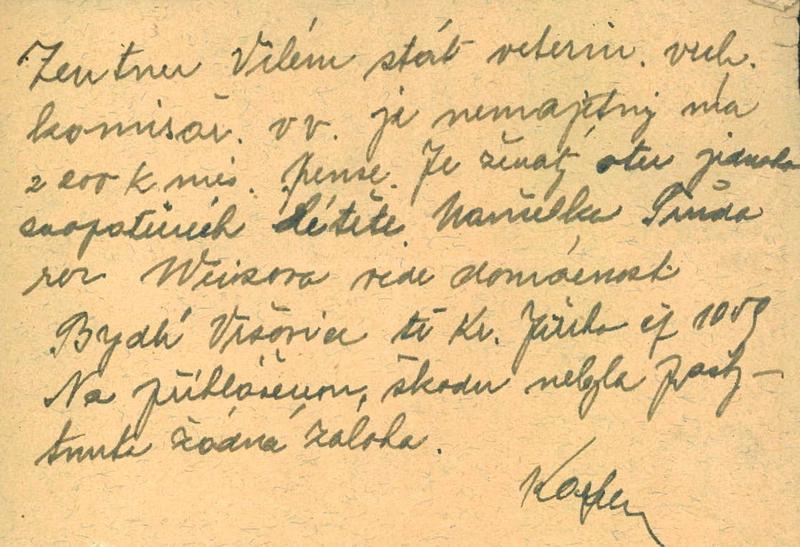 Zentner Vilém stát veterin. vrch.
komisař. v v. je nemajetný má
2 000 K měs. pense. Je ženatý, otec jednoho
zaopatřeného dítěte. Manželka Truda
roz Weisova vede domácnost
Bydlí Vršovice tř Kr. Jiřího čp 1059
Na přihlášenou škodu nebyla posky-
tnuta žádná záloha.